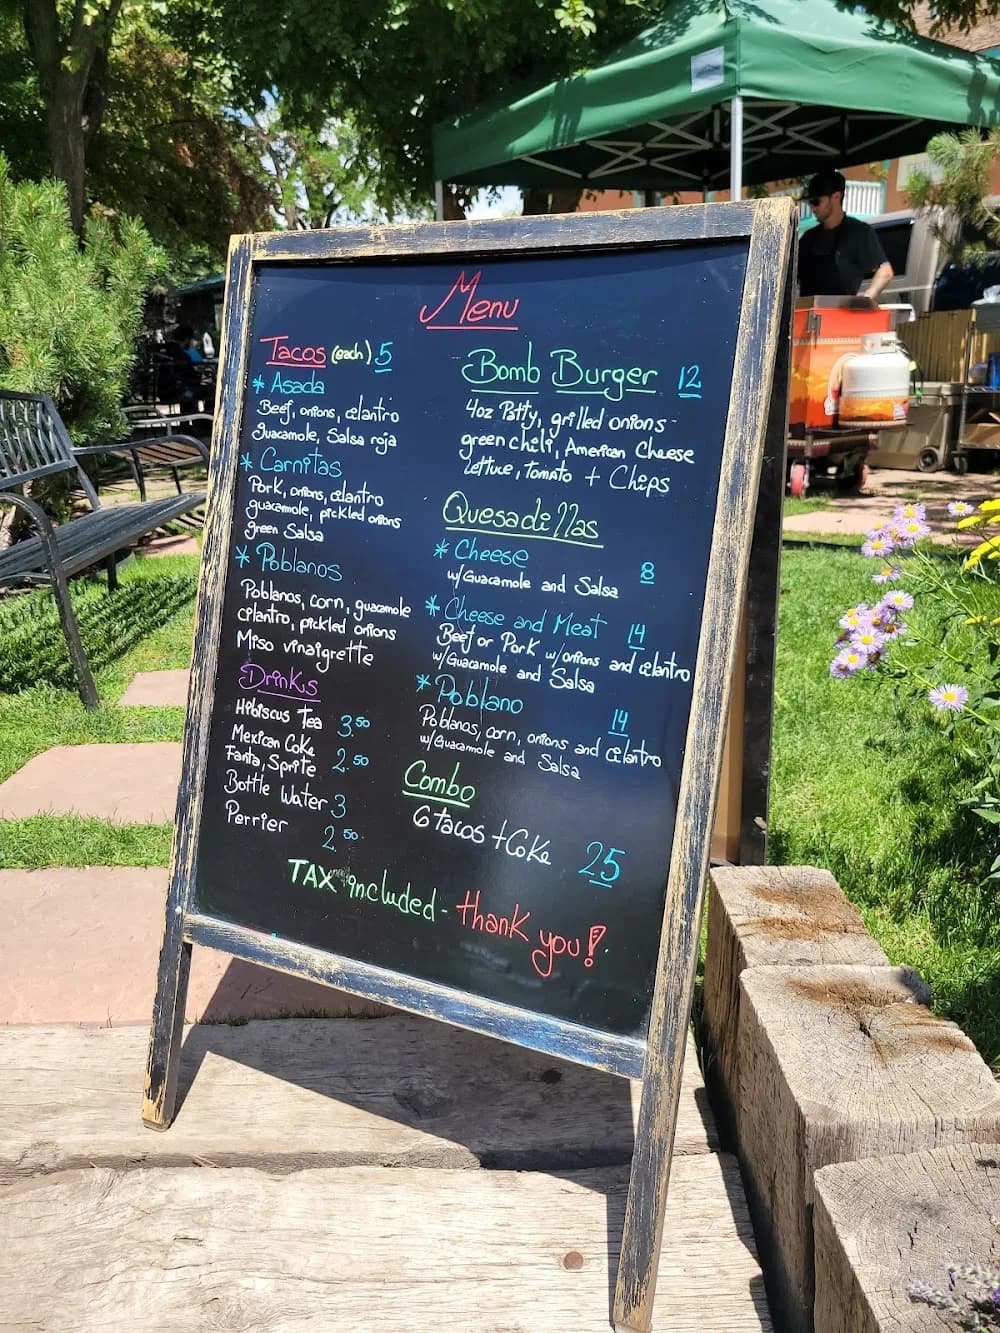 Menu
Tacos (each) 5
* Asada
Beef, onions, cilantro
guacamole, Salsa roja
* Carnitas
Pork, onions, cilantro
guacamole, pickled onions
green Salsa
* Poblanos
Poblanos, corn, guacamole
cilantro, pickled onions
Miso vinaigrette
Drinks
Hibiscus Tea 3.50
Mexican Coke
Fanta, Sprite 2.50
Bottle Water 3
Perrier 2.50
Bomb Burger 12
4oz Patty, grilled onions-
green chili, American Cheese
Lettuce, tomato + Chips
Quesadillas
* Cheese 8
w/Guacamole and Salsa
* Cheese and Meat 14
Beef or Pork w/onions and cilantro
w/Guacamole and Salsa
* Poblano 14
Poblanos, corn, onions and cilantro
w/Guacamole and Salsa
Combo
6 tacos + Coke 25
TAX included - thank you!